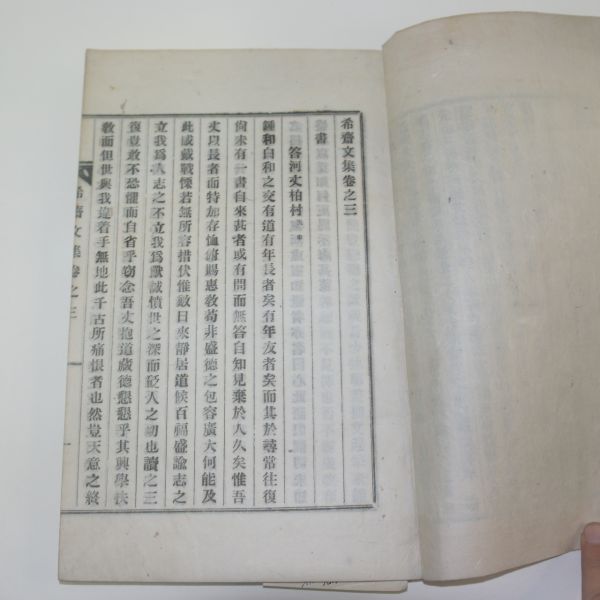 希齋文集卷之三
書
答河丈柏村
鍾和自和之交有道有年長者矣有年友者矣而其於尋常往復
尙未有一書自來甚者或有問而無答自知見棄於人久矣惟吾
丈以長者而特加存恤繼賜惠敎苟非盛德之包容廣大何能及
此感戴戰慄若無所容措伏惟歊日來靜居道候百福盛諭志之
立我爲人志之不立我爲獸誠憤世之深而貶人之切也讀之三
復豈敢不恐懼而自省乎竊念吾丈抱道藏德懇懇乎其興學扶
敎而但世與我違着手無地此千古所痛恨者也然豈天意之終
希齋文集卷之三